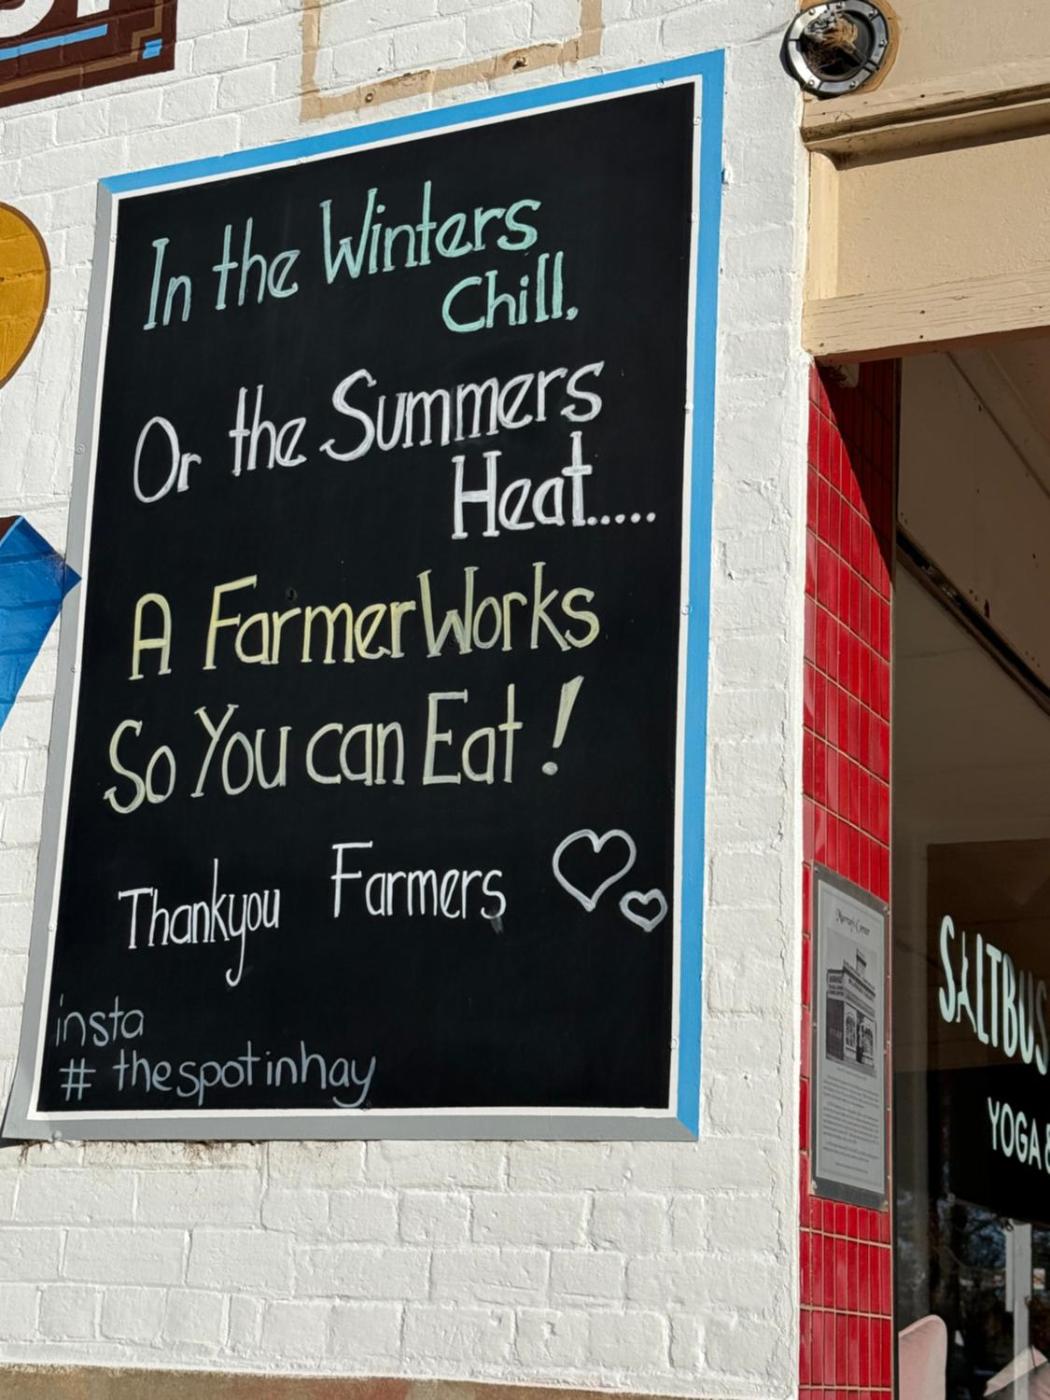 In the Winters
Chill.
Or the Summers
Heat.....
A Farmer Works
So You can Eat!
Thankyou Farmers
insta
# thespotinhay
SALTBUS
YOGA &